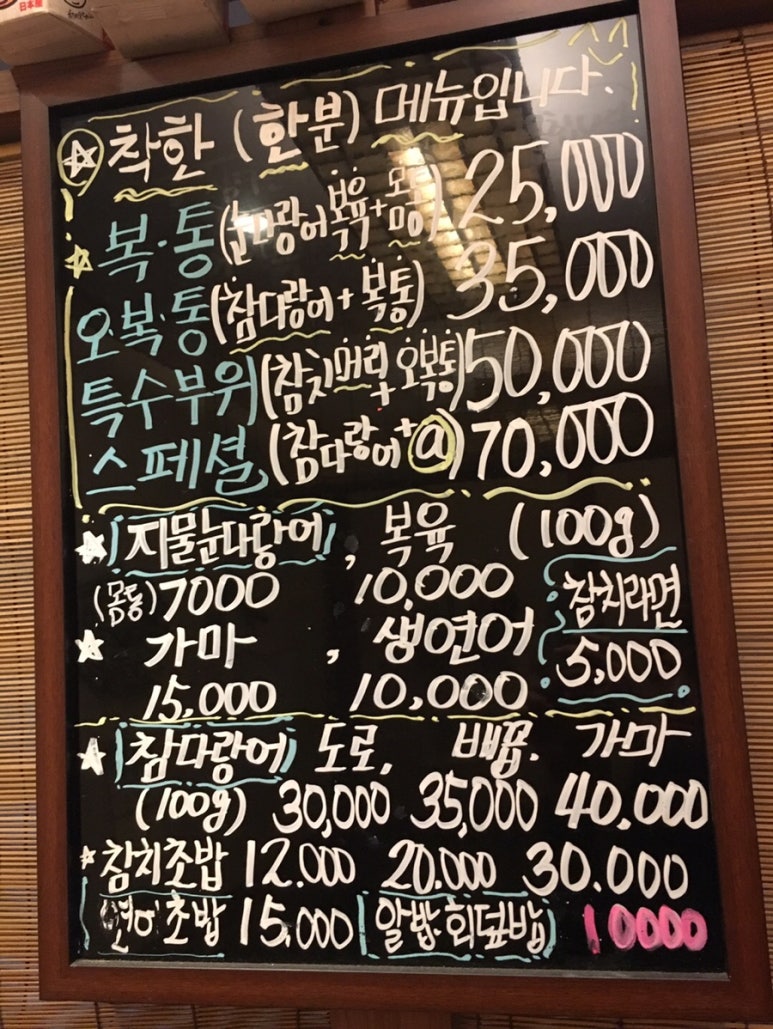 日本産
착한 (한분) 메뉴입니다.
복·통 (눈다랑어 복육+몸통) 25,000
오·복·통 (참다랑어+복통) 35,000
특수부위 (참치머리+오복통) 50,000
스페셜 (참다랑어+a) 70,000
지물눈다랑어, 복육 (100g)
(몸통) 7000 10,000
참치라면
가마, 생연어
5,000
15,000 10,000
참다랑어 도로, 배꼽. 가마
(100g) 30,000 35,000 40.000
참치초밥 12.000 20.000 30.000
연어초밥 15,000 알밥·회덮밥 10000